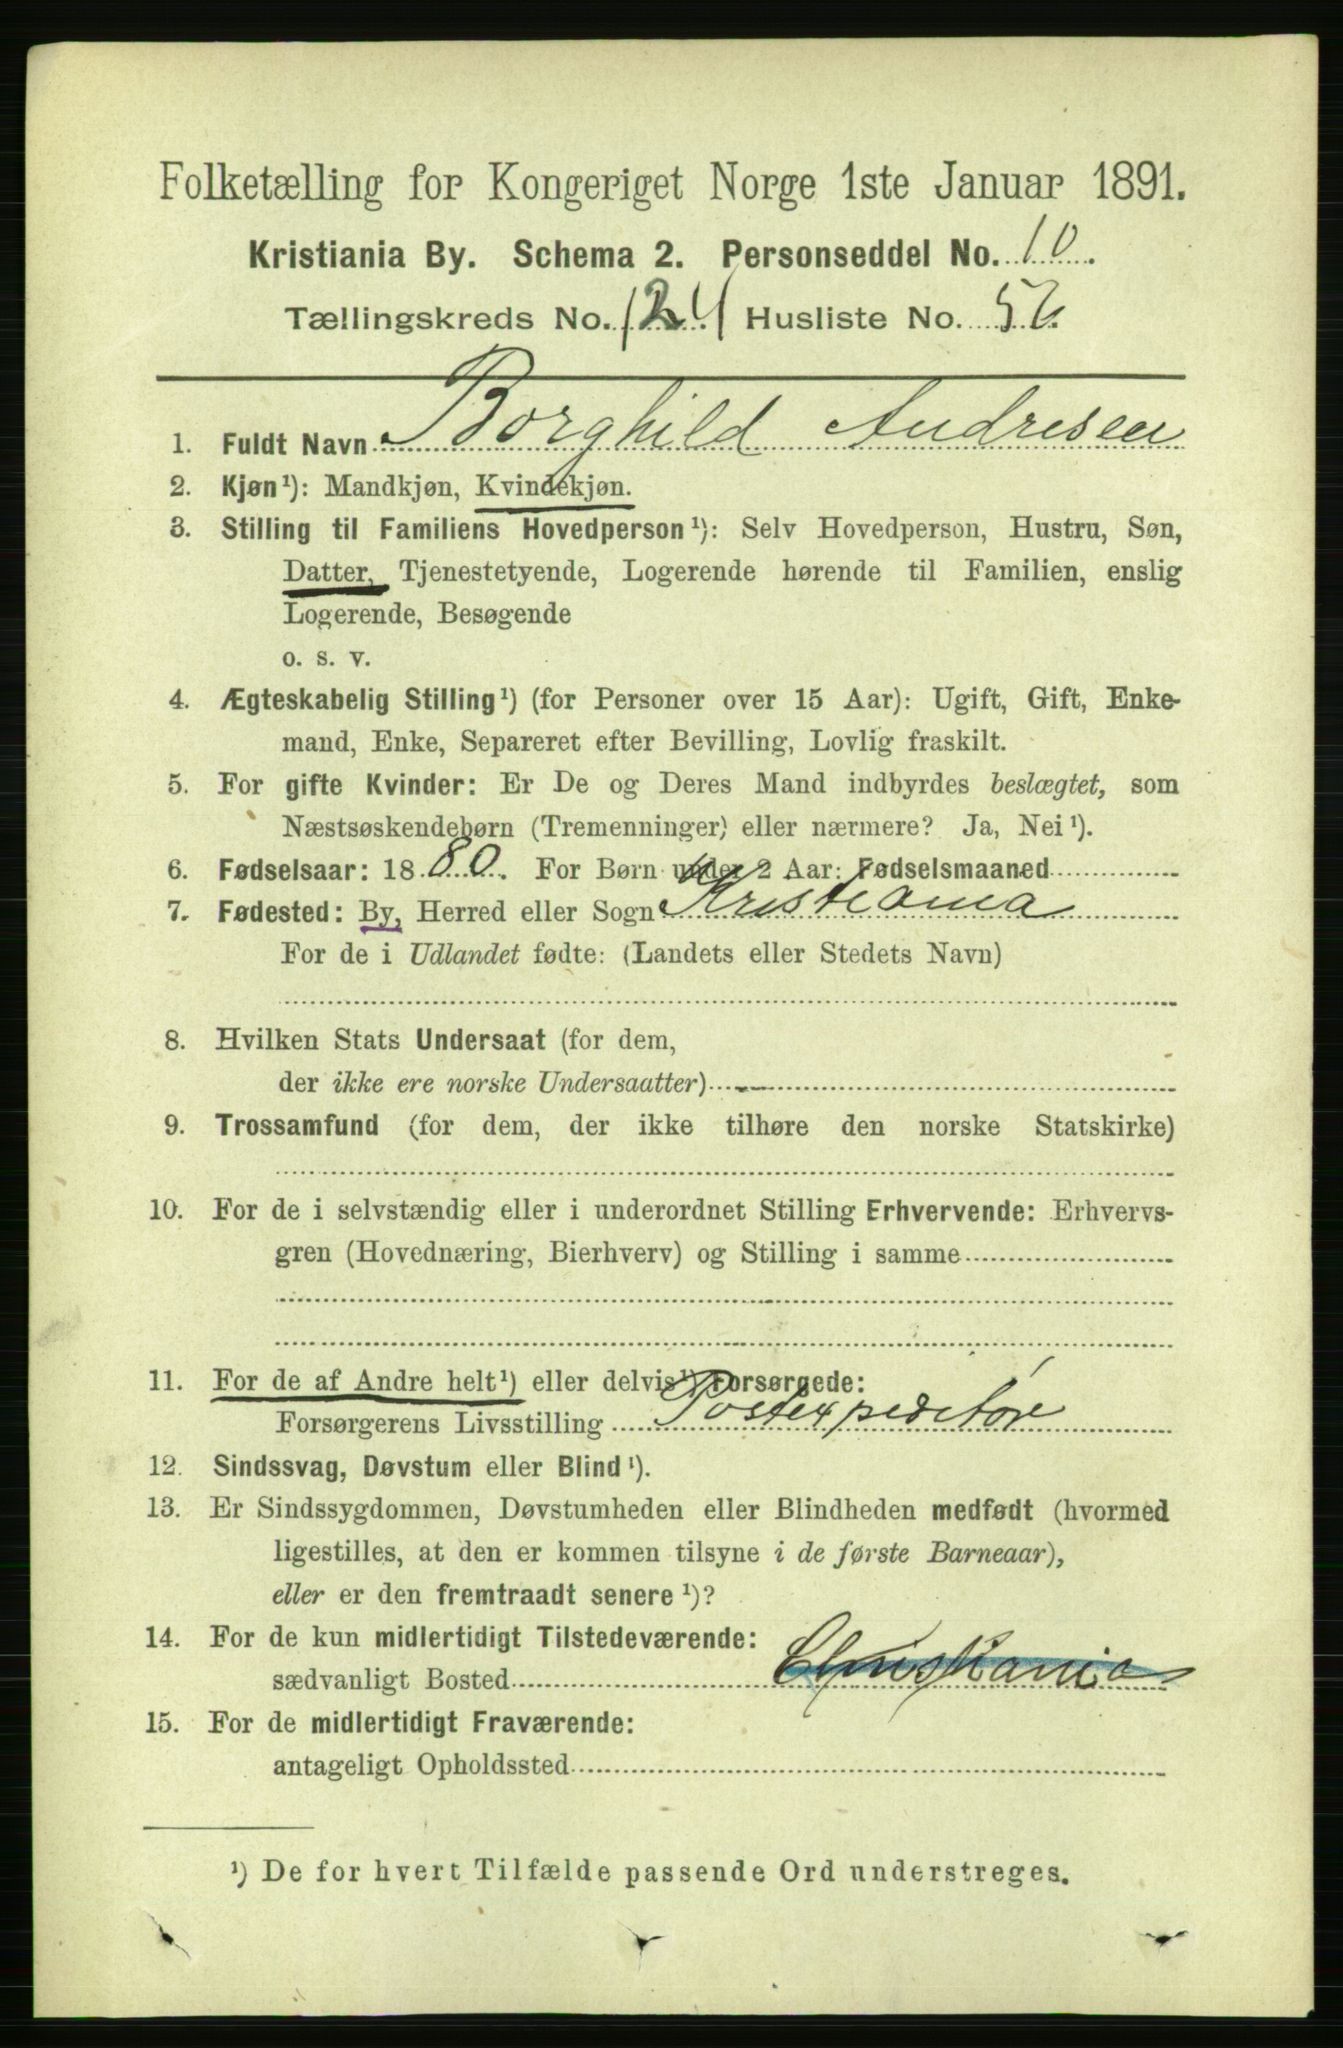 Folketælling for Kongeriget Norge 1ste Januar 1891.
Kristiania By. Schema 2. Personseddel No. 10.
Tællingskreds No. 124 Husliste No. 56.
1. Fuldt Navn Borghild Andresen
2. Kjøn¹): Mandkjøn, Kvindekjøn.
3. Stilling til Familiens Hovedperson¹): Selv Hovedperson, Hustru, Søn,
Datter, Tjenestetyende, Logerende hørende til Familien, enslig
Logerende, Besøgende
o. s. v.
4. Ægteskabelig Stilling¹) (for Personer over 15 Aar): Ugift, Gift, Enke-
mand, Enke, Separeret efter Bevilling, Lovlig fraskilt.
5. For gifte Kvinder: Er De og Deres Mand indbyrdes beslægtet, som
Næstsøskendebørn (Tremenninger) eller nærmere? Ja, Nei¹).
6. Fødselsaar: 1880. For Børn under 2 Aar: Fødselsmaaned
7. Fødested: By, Herred eller Sogn Kristiania
For de i Udlandet fødte: (Landets eller Stedets Navn)
8. Hvilken Stats Undersaat (for dem,
der ikke ere norske Undersaatter)
9. Trossamfund (for dem, der ikke tilhøre den norske Statskirke)
10. For de i selvstændig eller i underordnet Stilling Erhvervende: Erhvervs-
gren (Hovednæring, Bierhverv) og Stilling i samme
11. For de af Andre helt¹) eller delvis¹) Forsørgede:
Forsørgerens Livsstilling Postexpeditør
12. Sindssvag, Døvstum eller Blind¹).
13. Er Sindssygdommen, Døvstumheden eller Blindheden medfødt (hvormed
ligestilles, at den er kommen tilsyne i de første Barneaar),
eller er den fremtraadt senere¹)?
14. For de kun midlertidigt Tilstedeværende:
sædvanligt Bosted Christiania
15. For de midlertidigt Fraværende:
antageligt Opholdssted
¹) De for hvert Tilfælde passende Ord understreges.